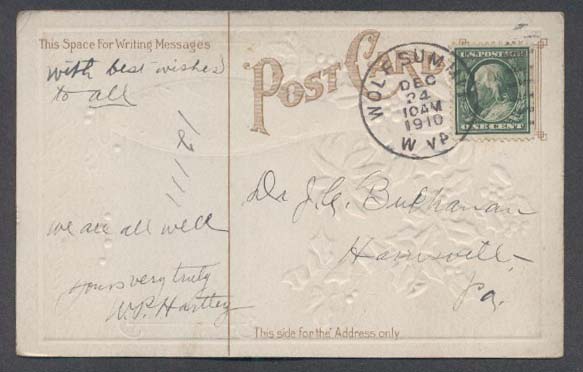 This Space For Writing Messages
POST CARD
with best wishes
to all
we are all well
yours very truly
W.P. Hartley
WOLFSUMMIT
DEC
24
10AM
1910
W VA
U.S. POSTAGE
ONE CENT
Dr J.G. Buchanan
Harrisville
Pa.
This side for the Address only